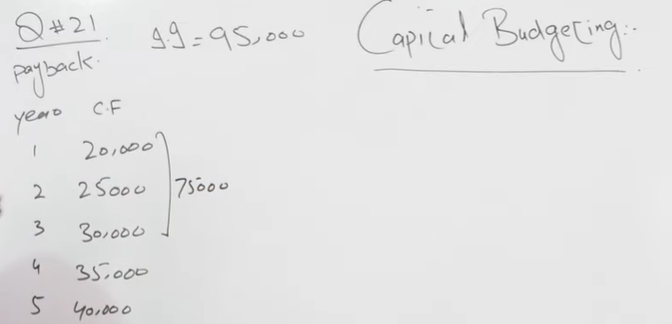 Q#21
I.I = 95,000
Capital Budgeting:-
payback.
years C.F
1 20,000
2 25000
3 30,000
75000
4 35,000
5 40,000